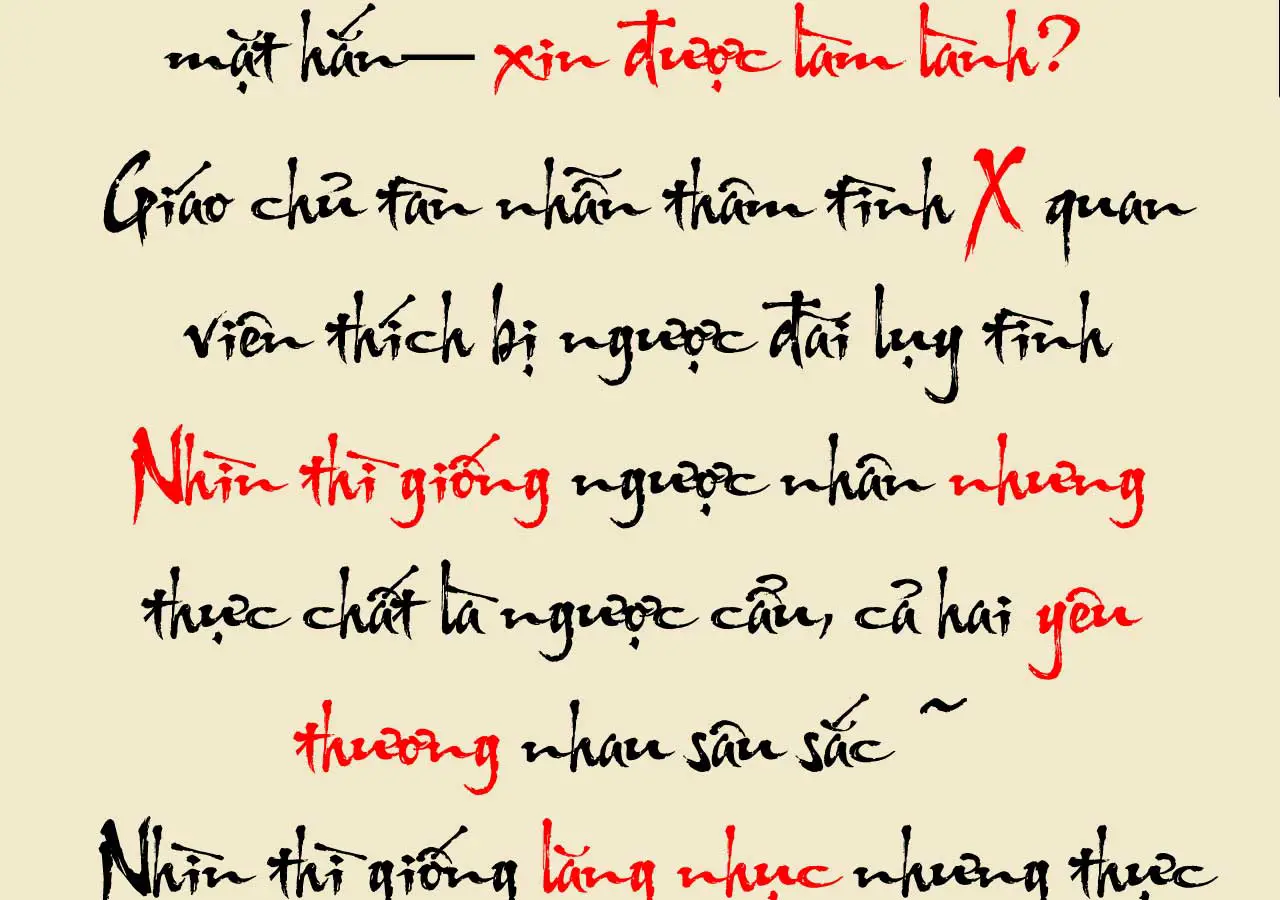 mặt hắn— xin được làm lành?
Giáo chủ tàn nhẫn thâm tình X quan
viên thích bị ngược đãi lụy tình
Nhìn thì giống ngược nhân nhưng
thực chất là ngược cẩu, cả hai yêu
thương nhau sâu sắc ~
Nhìn thì giống lăng nhục nhưng thực